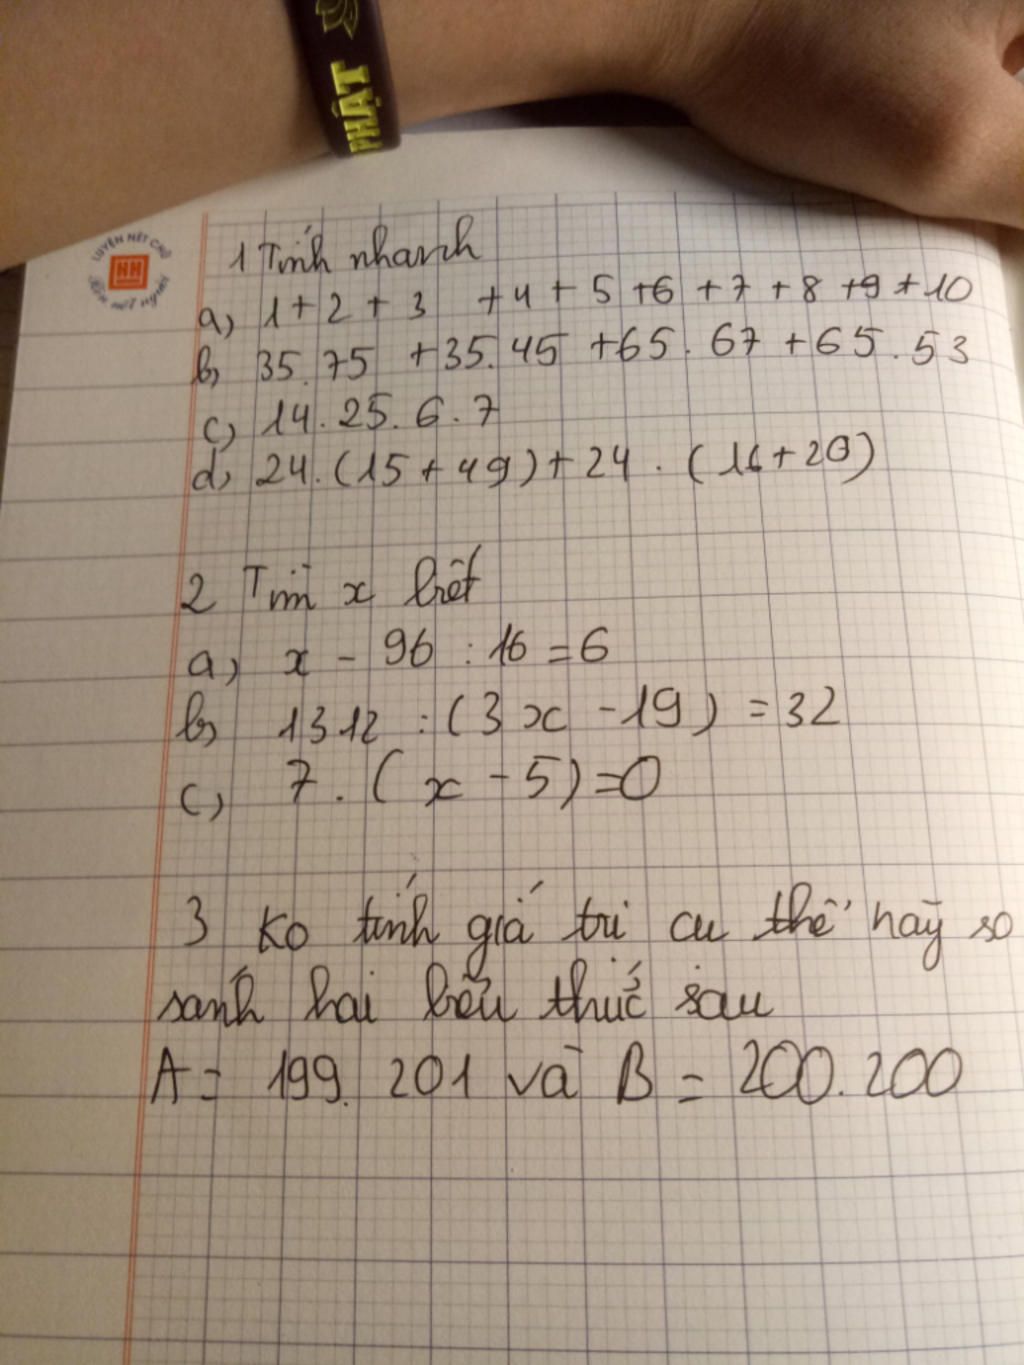 PHẬT
LUYỆN NÉT CHỮ
HH
Rèn nết người
1 Tính nhanh
a) 1 + 2 + 3 + 4 + 5 + 6 + 7 + 8 + 9 + 10
b) 35 . 75 + 35 . 45 + 65 . 67 + 65 . 53
c) 14 . 25 . 6 . 7
d) 24 . (15 + 49) + 24 . (16 + 20)
2 Tìm x biết
a) x - 96 : 16 = 6
b) 1312 : (3x - 19) = 32
c) 7 . (x - 5) = 0
3 Ko tính giá trị cụ thể hãy so
sánh hai biểu thức sau
A = 199 . 201 và B = 200 . 200